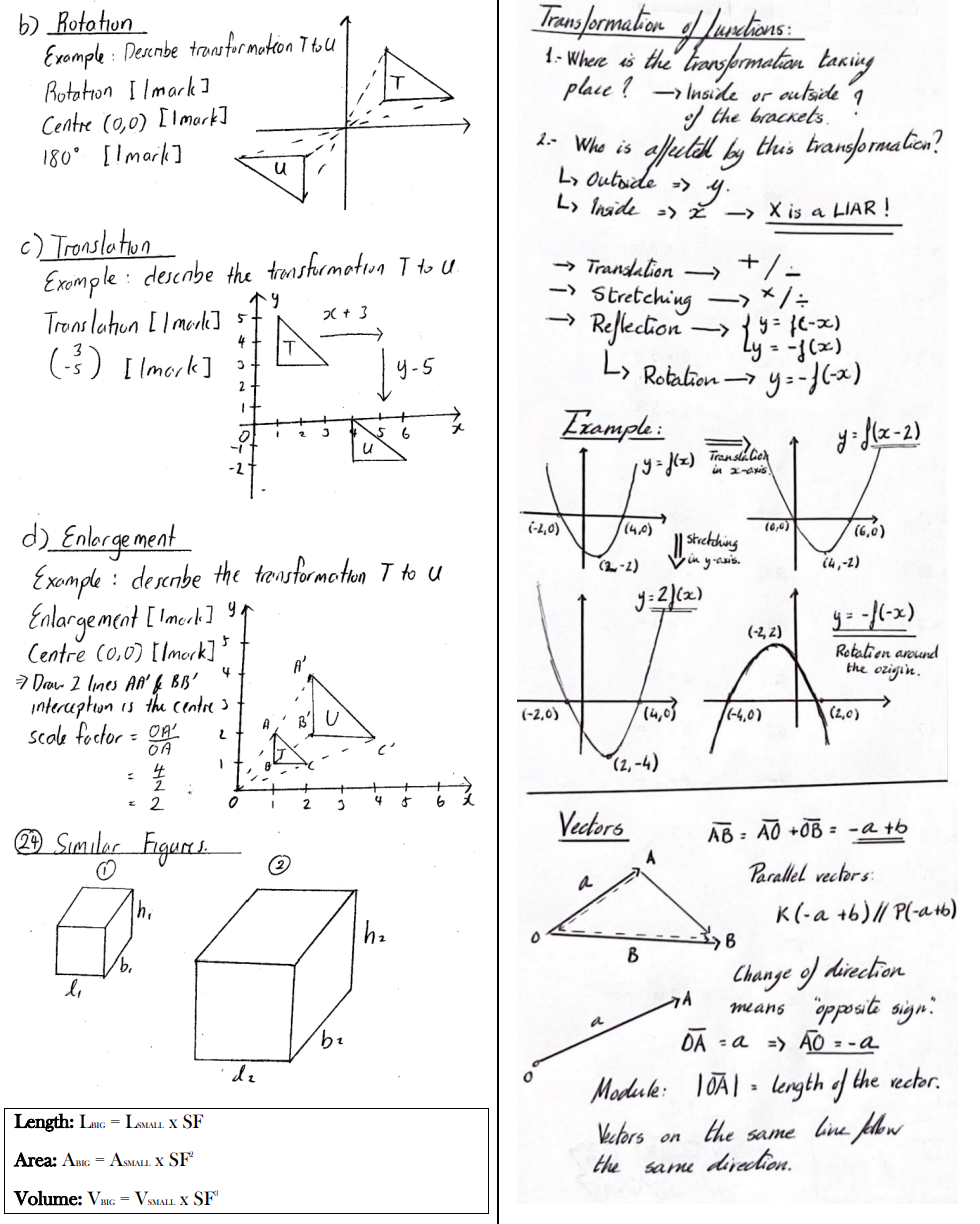 b) Rotation
Example: Describe transformation T to U
Rotation [1mark]
Centre (0,0) [1mark]
180° [1mark]
T
U
c) Translation
Example: describe the transformation T to U.
Translation [1mark]
(3 -5) [1mark]
y
x + 3
y - 5
5
4
3
2
1
0
-1
-2
1 2 3 4 5 6 x
T
U
d) Enlargement
Example: describe the transformation T to U
Enlargement [1mark]
Centre (0,0) [1mark]
⇒ Draw 2 lines AA' & BB'
interception is the centre
scale factor = OA'/OA
= 4/2
= 2
y
5
4
3
2
1
0 1 2 3 4 5 6 x
A'
A B' U
T C'
B C
24 Similar Figures.
1 2
h₁
b₁
l₁
h₂
b₂
d₂
Length: LBIG = LSMALL x SF
Area: ABIG = ASMALL x SF²
Volume: VBIG = VSMALL x SF³
Transformation of functions:
1.- Where is the transformation taking
place? → Inside or outside ?
of the brackets.
2.- Who is affected by this transformation?
↳ Outside => y.
↳ Inside => x → X is a LIAR!
→ Translation → + / -
→ Stretching → × / ÷
→ Reflection → { y = f(-x)
y = -f(x)
↳ Rotation → y = -f(-x)
Example:
y = f(x)
Translation
in x-axis.
y = f(x-2)
(-2,0) (4,0)
(2,-2)
(0,0) (6,0)
(4,-2)
Stretching
in y-axis.
y = 2f(x)
(-2,0) (4,0)
(2,-4)
y = -f(-x)
Rotation around
the origin.
(-2,2)
(-4,0) (2,0)
Vectors
AB = AO + OB = -a + b
a A
O B
B
Parallel vectors:
K(-a + b) // P(-a+b)
Change of direction
means "opposite sign".
a A
O
OA = a => AO = -a
Module: |OA| = length of the vector.
Vectors on the same line follow
the same direction.